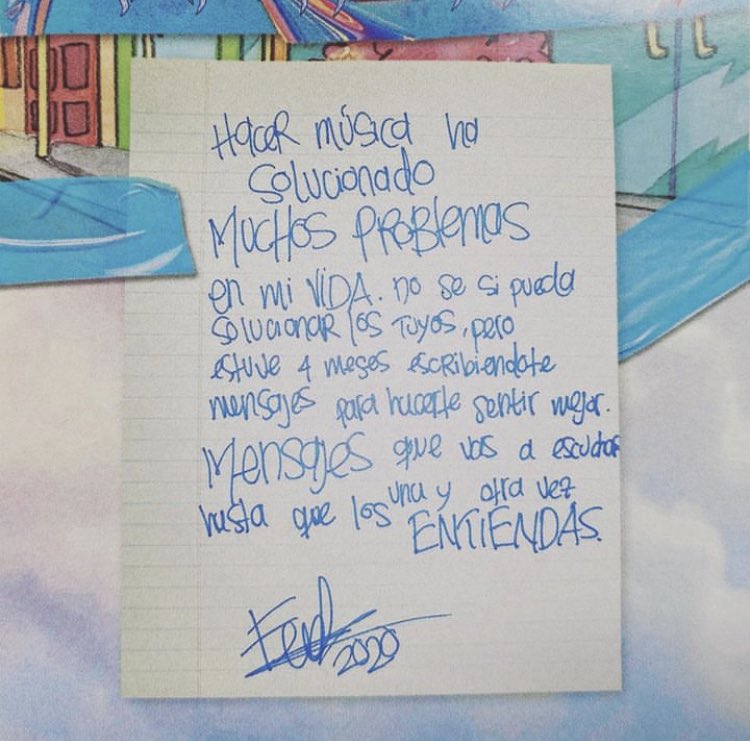 HACER MÚSICA ha
Solucionado
MUCHOS PROBlEMAS
en mi VIDA. no se si pueda
SOLUCIONAR los TUYOS, pero
estuve 4 meses escribiendote
mensajes para hacerte sentir mejor.
Mensajes que vas a escuchar
una y otra vez
hasta que los ENTIENDAS.
Feid
2020